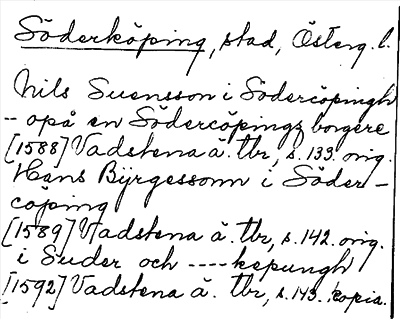 Söderköping, stad, Österg. l.
Nils Suensson i Södercöpingh
- opå en Södercöpings borgere
[1588] Vadstena ä. tbr, s. 133. orig.
Hans Byrgessonn i Söder-
cöping
[1589] Vadstena ä. tbr, s. 142. orig.
i Suder och ----kepungh
[1592] Vadstena ä. tbr, s. 143. kopia.